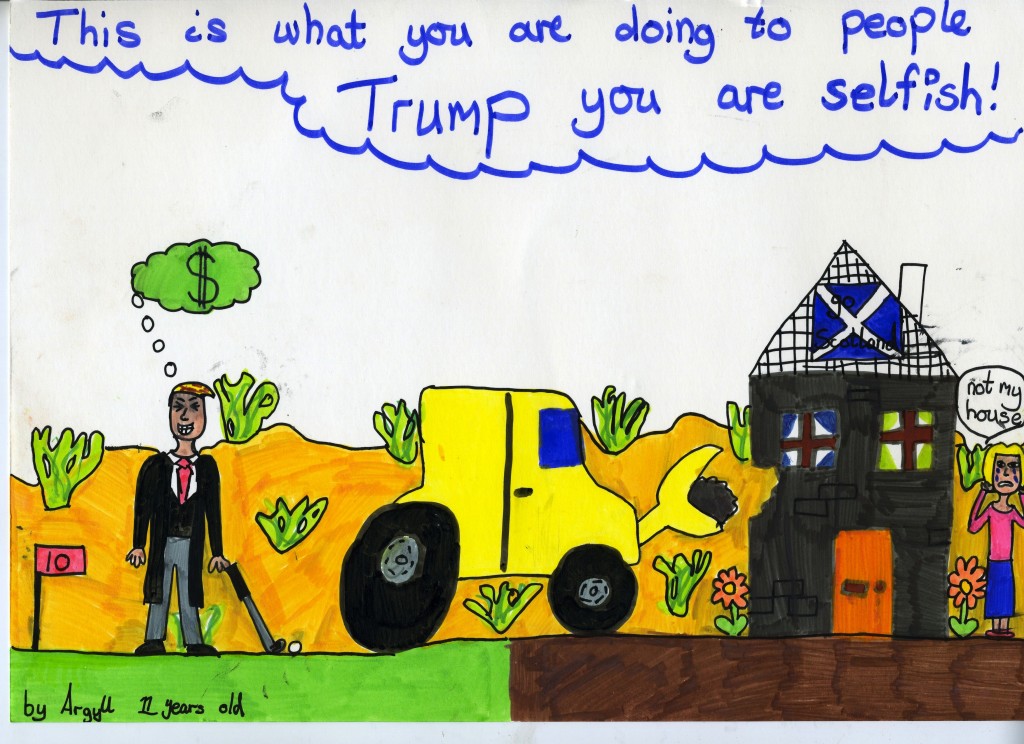 This is what you are doing to people
Trump you are selfish!
$
go
Scotland
not my
house
10
by Argyll 11 years old